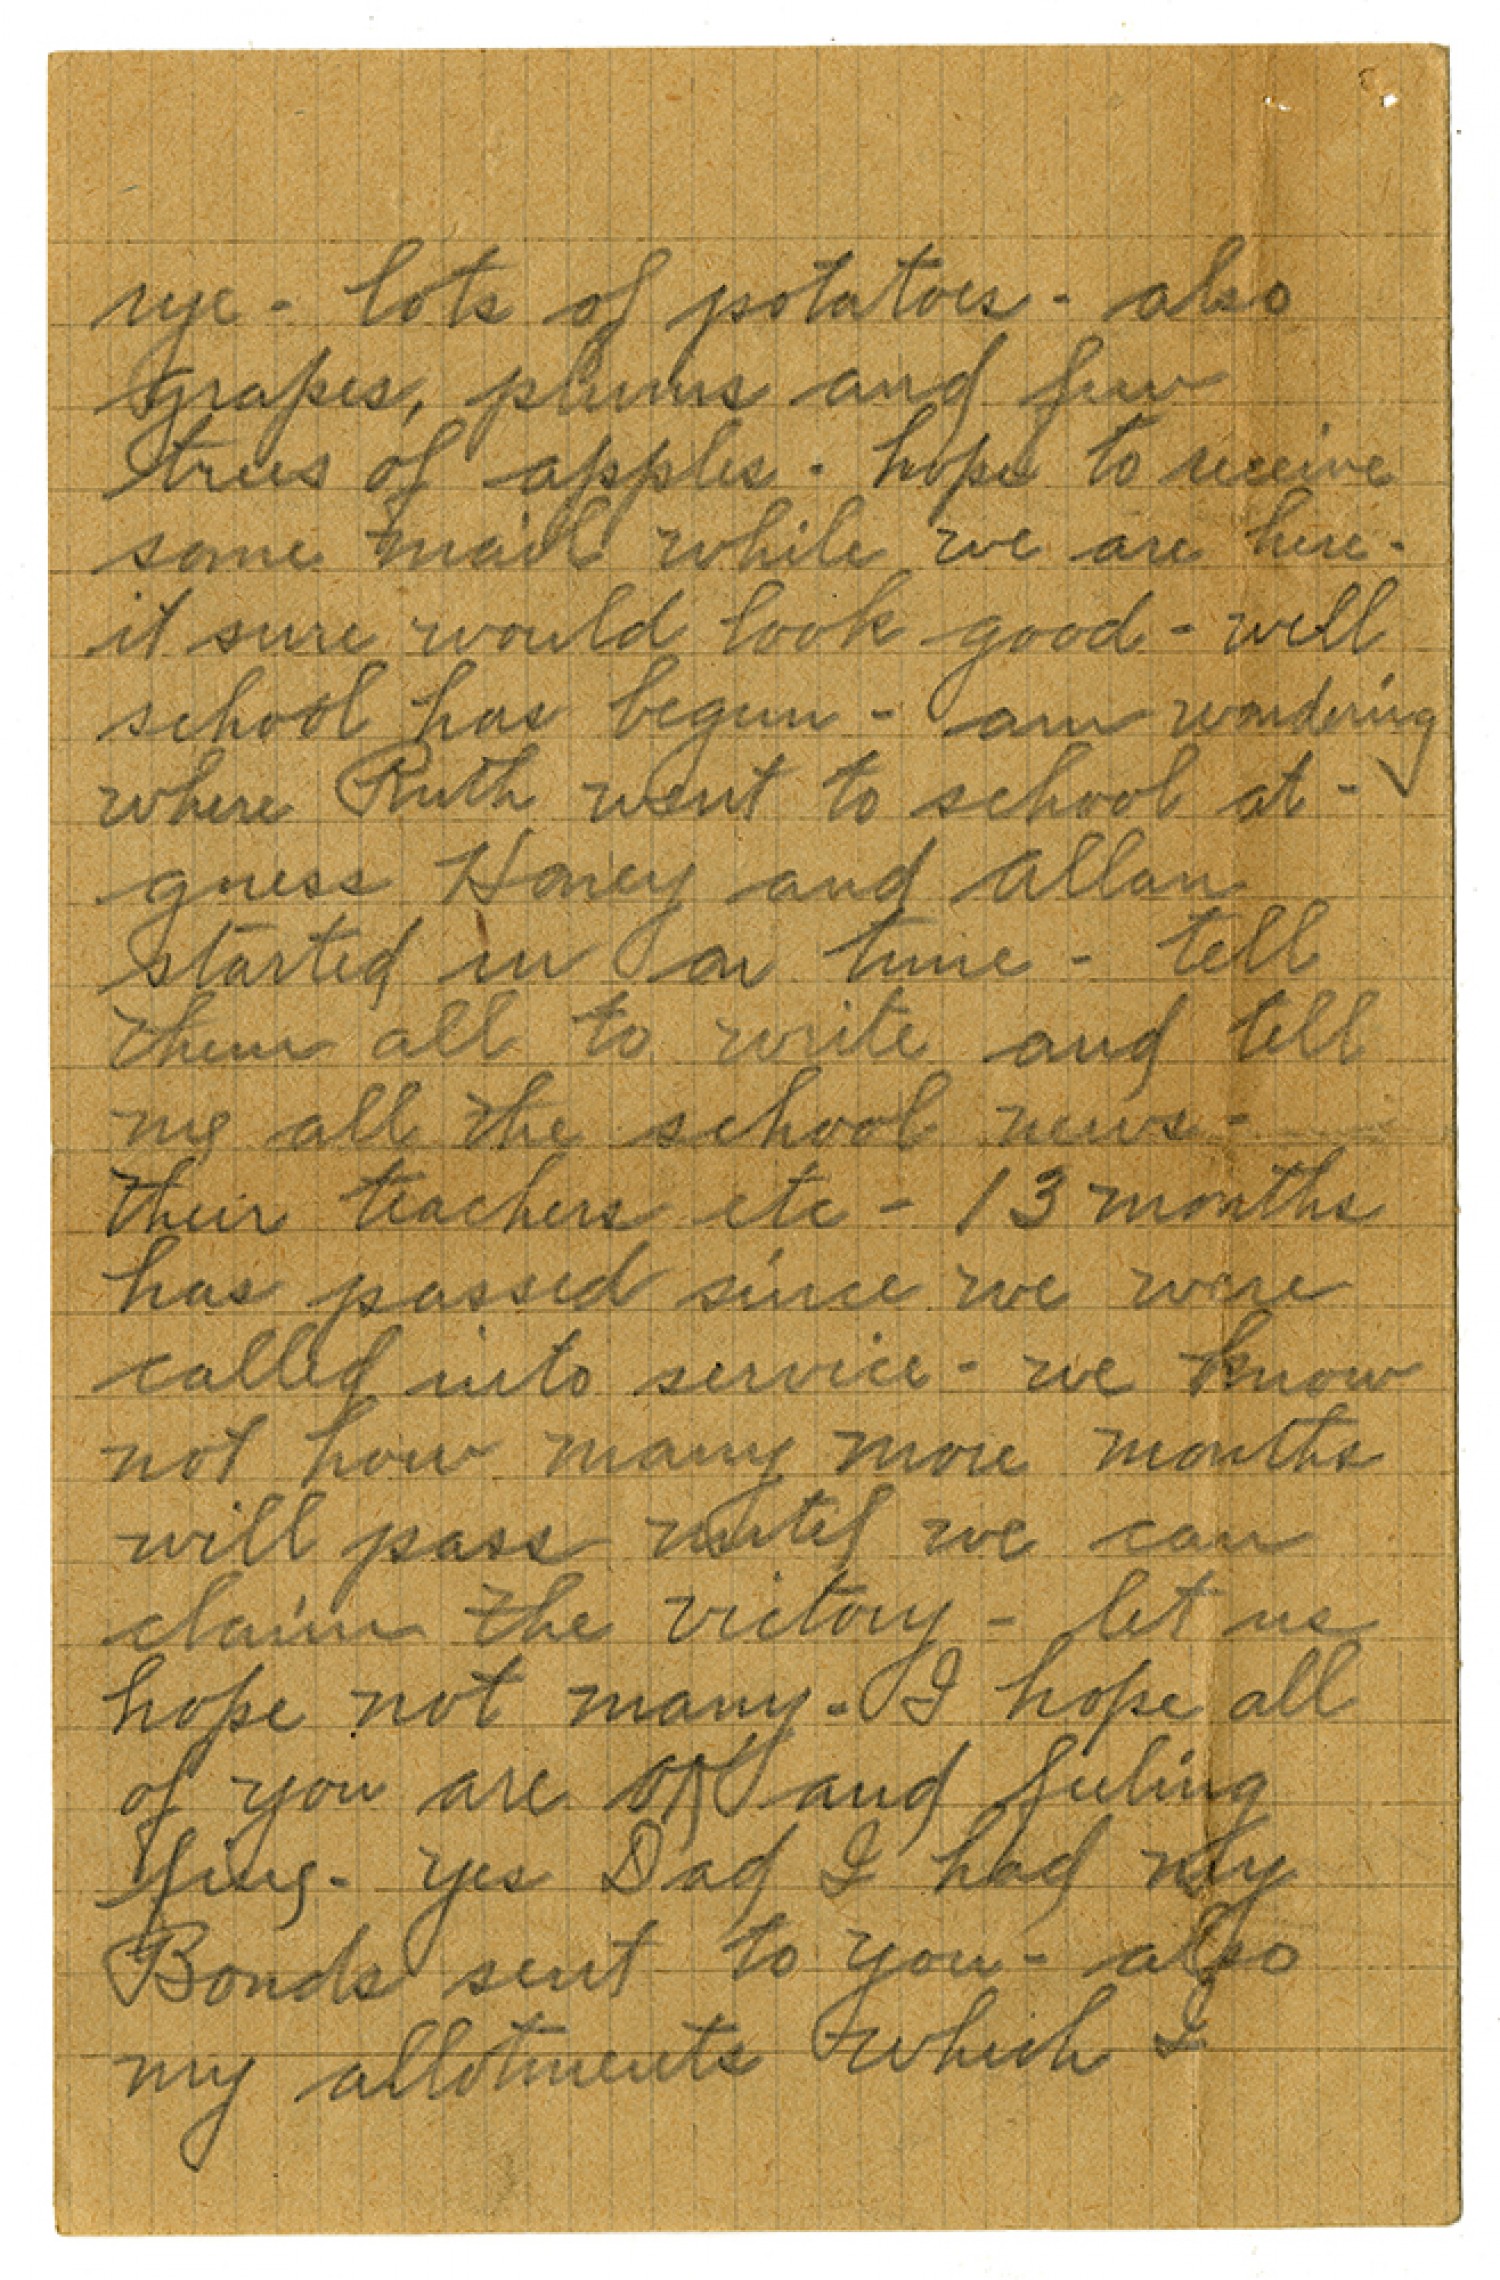 rye - lots of potatoes - also
grapes, plums and few
trees of apples - hope to receive
some mail while we are here -
it sure would look good - well
school has begun - am wondering
where Ruth went to school at -
guess Honey and Allan
started in on time - tell
them all to write and tell
me all the school news -
their teachers etc - 13 months
has passed since we were
called into service - we know
not how many more months
will pass until we can
claim the victory - let us
hope not many - I hope all
of you are and feeling
fine - yes Dad I had my
Bonds sent to you - also
my allotments which I